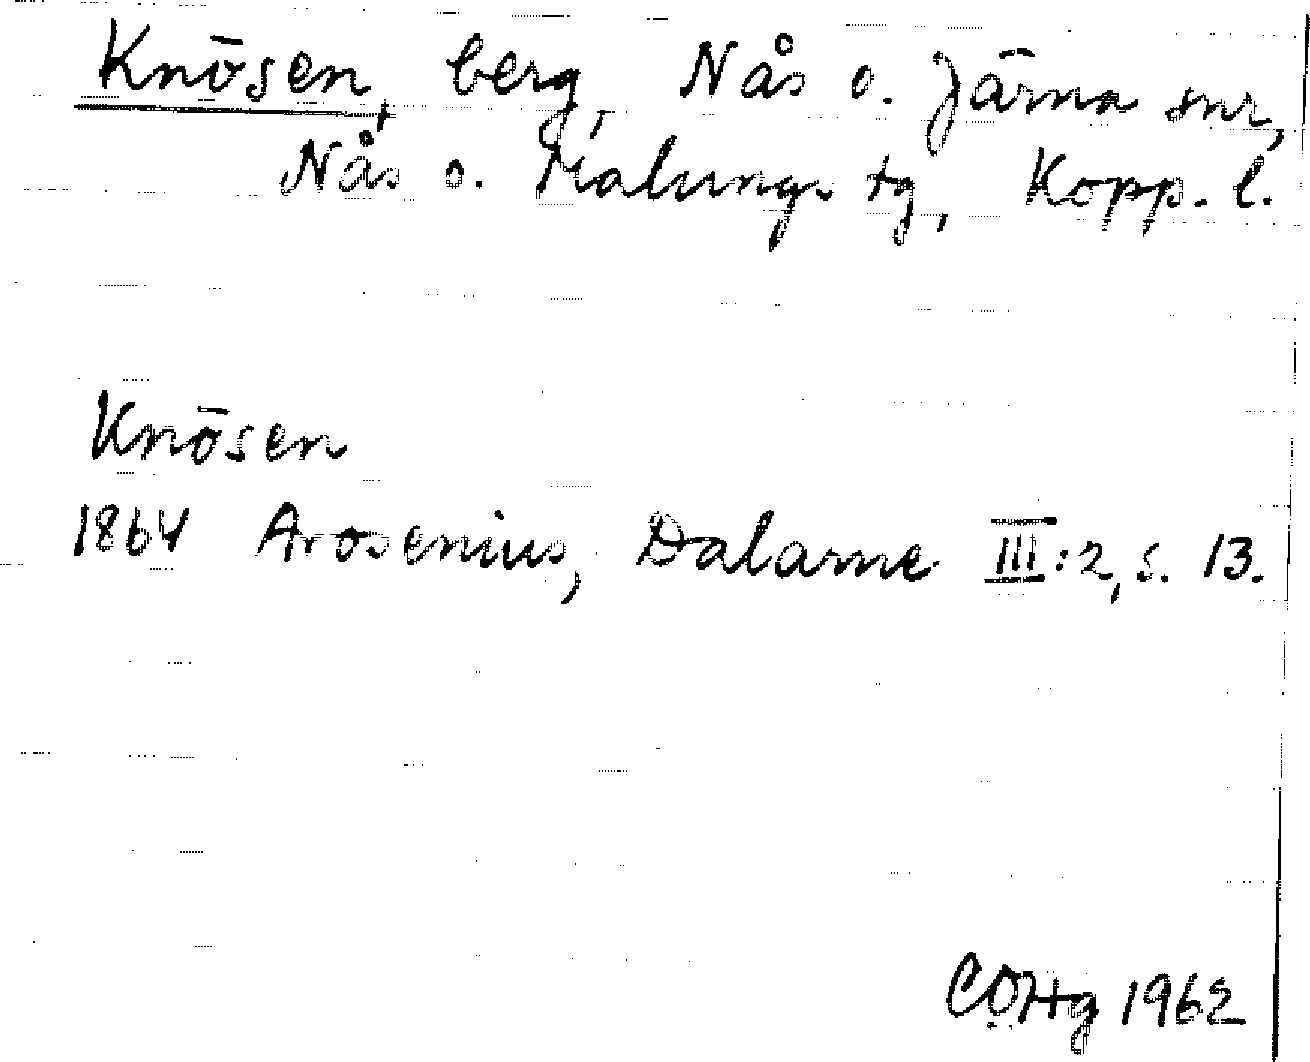 Knösen, berg, Nås o. Järna snr,
Nås o. Malungs tg, Kopp. l.
Knösen
1864 Arosenius, Dalarne III:2, s. 13.
COHg 1962